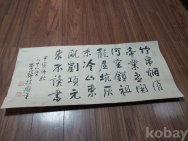 竹帛烟消
帝業虛関
河空鎖祖
龍居坑灰
未冷山東
亂劉項元
來不讀書
kobay